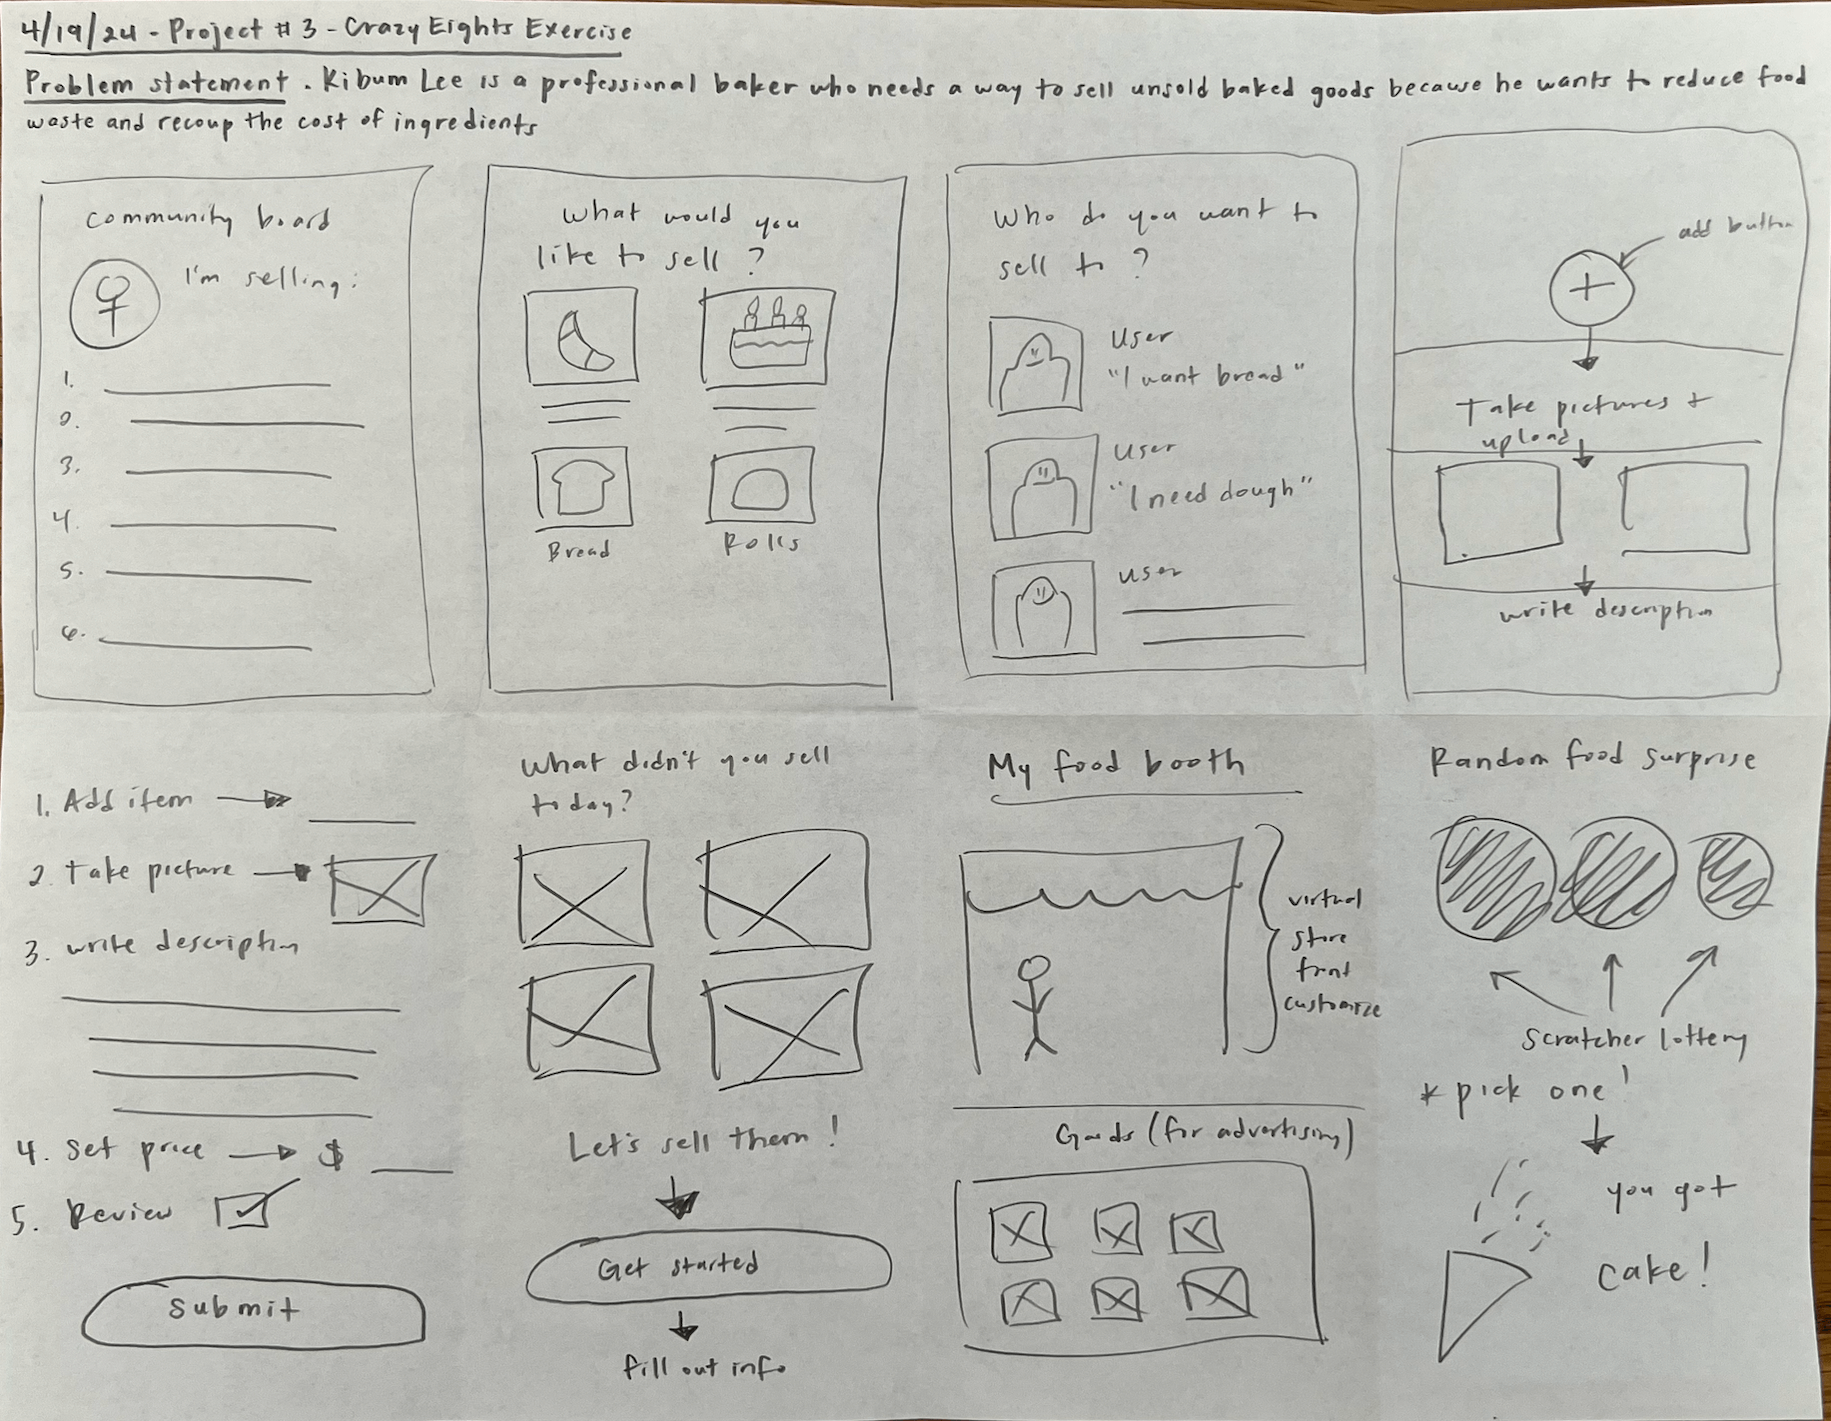 4/19/24 - Project #3 - Crazy Eights Exercise
Problem statement. Kibum Lee is a professional baker who needs a way to sell unsold baked goods because he wants to reduce food
waste and recoup the cost of ingredients
community board
I'm selling:
1.
2.
3.
4.
5.
6.
What would you
like to sell?
Bread
Rolls
Who do you want to
sell to?
User
"I want bread"
User
"I need dough"
User
add button
+
Take pictures +
upload
write description
1. Add item
2. Take picture
3. write description
4. Set price → $
5. Review
Submit
What didn't you sell
today?
Let's sell them!
Get started
fill out info
My food booth
virtual
store
front
customize
Goods (for advertising)
Random food surprise
scratcher lottery
* pick one!
you got
cake!